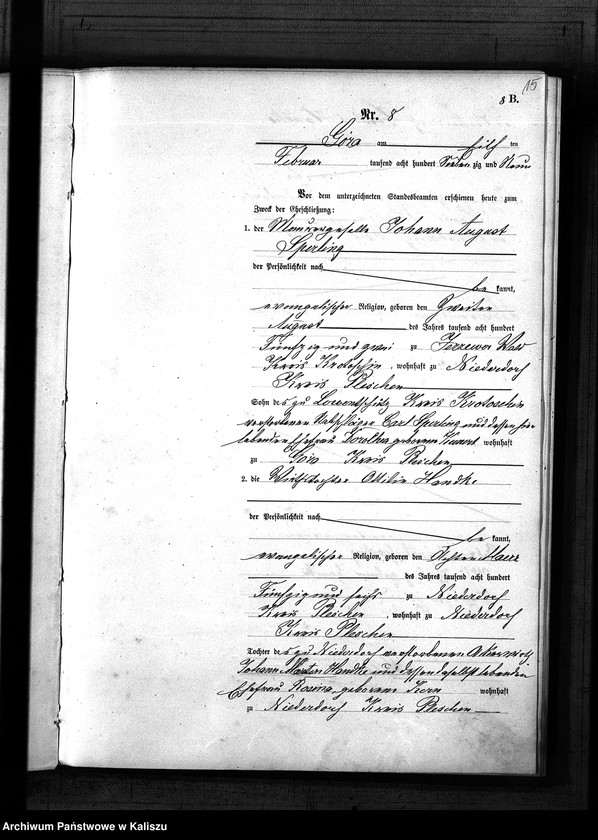 15
8 B.
Nr. 8
Góra am Eilf ten
Februar tausend acht hundert Sieben zig und Neun
Vor dem unterzeichneten Standesbeamten erschienen heute zum
Zweck der Eheschließung:
1. der Maurergeselle Johann August
Sperling
der Persönlichkeit nach
be kannt,
evangelischer Religion, geboren den Zweiten
August des Jahres tausend acht hundert
Fünfzig und zwei zu
Kreis Krotoschin, wohnhaft zu Niederdorf
Kreis Pleschen
Sohn des zu Kreis Krotoschin
verstorbenen Carl Sperling und dessen hier
lebenden Ehefrau Dorothea geborenen wohnhaft
zu Góra Kreis Pleschen
2. die Wirthstochter Ottilie Handke
der Persönlichkeit nach
be kannt,
evangelischer Religion, geboren den Achten Maerz
des Jahres tausend acht hundert
Fünfzig und sechs zu Niederdorf
Kreis Pleschen, wohnhaft zu Niederdorf
Kreis Pleschen
Tochter des zu Niederdorf verstorbenen
Johann Martin Handke und dessen daselbst lebenden
Ehefrau Rosina geborenen Kern wohnhaft
zu Niederdorf Kreis Pleschen
Archiwum Państwowe w Kaliszu